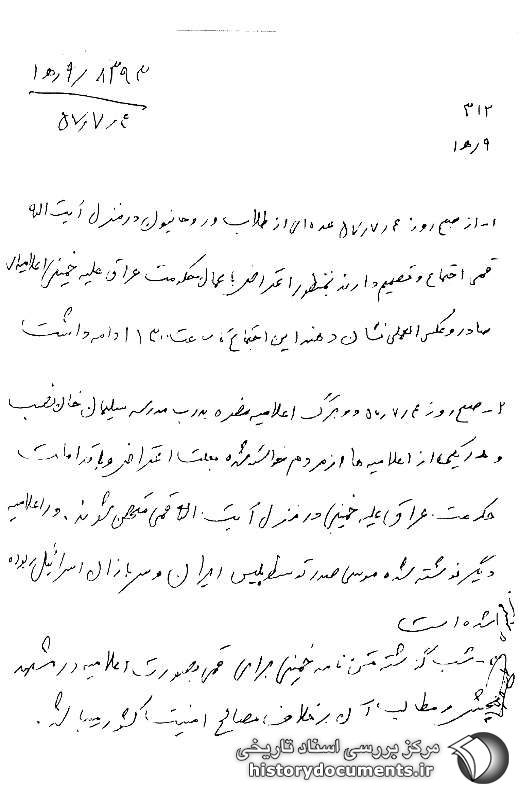 ۸۳۹۳ / ۹ﻫ۱
۵۷/۷/۴
۳۱۲
۹ﻫ۱
۱- از صبح روز ۵۷/۷/۴ عده‌ای از طلاب و روحانیون در منزل آیت اله
قمی اجتماع و تصمیم دارند بمنظور اعتراض باعمال حکومت عراق علیه خمینی اعلامیه‌ای
صادر و عکس العملی نشان دهند این اجتماع تا ساعت ۱۱۳۰ ادامه داشت
۲- صبح روز ۵۷/۷/۴ دو برگ اعلامیه مضره بدرب مدرسه سلیمان خان نصب
و در یکی از اعلامیه ها از مردم خواسته شده بعلت اعتراض باقدامات
حکومت عراق علیه خمینی در منزل آیت اله قمی متحصن شوند. در اعلامیه
دیگر نوشته شده موسی صدر توسط پلیس ایران و سربازان اسرائیل ربوده
شده است
شب گذشته متن نامه خمینی برای قمی بصورت اعلامیه در مشهد
پخش و مطالب آن برخلاف مصالح امنیت کشور میباشد.
مرکز بررسی اسناد تاریخی
historydocuments.ir